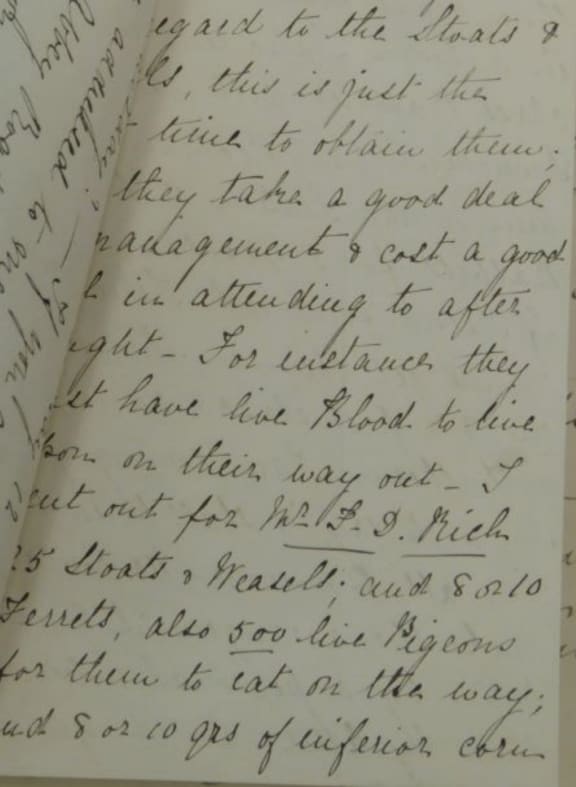 egard to the Stoats &
ls, this is just the
time to obtain them;
they take a good deal
management & cost a good
l in attending to after
ght - For instance they
st have live Blood to live
pon on their way out - I
ent out for Mr. F. D. Rich
25 Stoats & Weasels; and 8 or 10
Ferrets, also 500 live Pigeons
for them to eat on the way;
nd 8 or 10 qrs of inferior corn
addressed to me